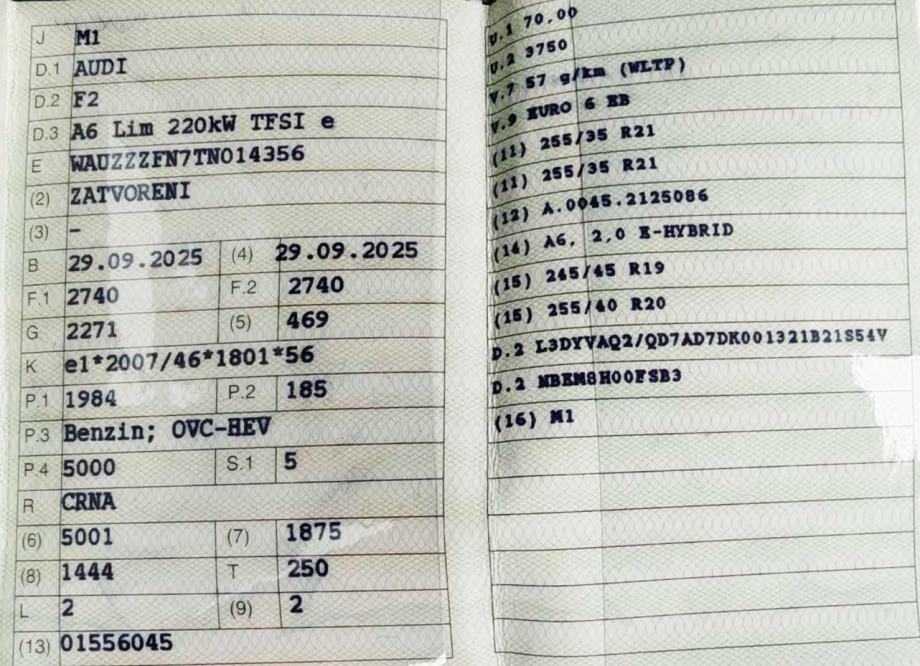 J M1
D.1 AUDI
D.2 F2
D.3 A6 Lim 220kW TFSI e
E WAUZZZFN7TN014356
(2) ZATVORENI
(3) –
B 29.09.2025 (4) 29.09.2025
F.1 2740 F.2 2740
G 2271 (5) 469
K e1*2007/46*1801*56
P.1 1984 P.2 185
P.3 Benzin; OVC-HEV
P.4 5000 S.1 5
R CRNA
(6) 5001 (7) 1875
(8) 1444 T 250
L 2 (9) 2
(13) 01556045
U.1 70,00
U.2 3750
V.7 57 g/km (WLTP)
V.9 EURO 6 EB
(11) 255/35 R21
(11) 255/35 R21
(12) A.0045.2125086
(14) A6, 2,0 E-HYBRID
(15) 245/45 R19
(15) 255/40 R20
D.2 L3DYVAQ2/QD7AD7DK001321B21S54V
D.2 NBEM8H00FSB3
(16) M1